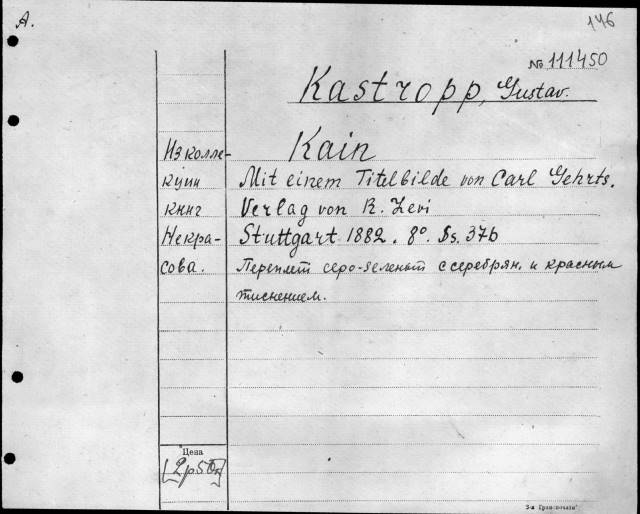 A.
146
№ 111450
Kastropp, Gustav.
Из колле- Kain
кции Mit einem Titelbilde von Carl Gehrts.
книг Verlag von R. Levi
Некра- Stuttgart 1882. 8°. Ss. 376
сова. Переплет серо-зеленый с серебрян. и красным
тиснением.
Цена
[2р50к]